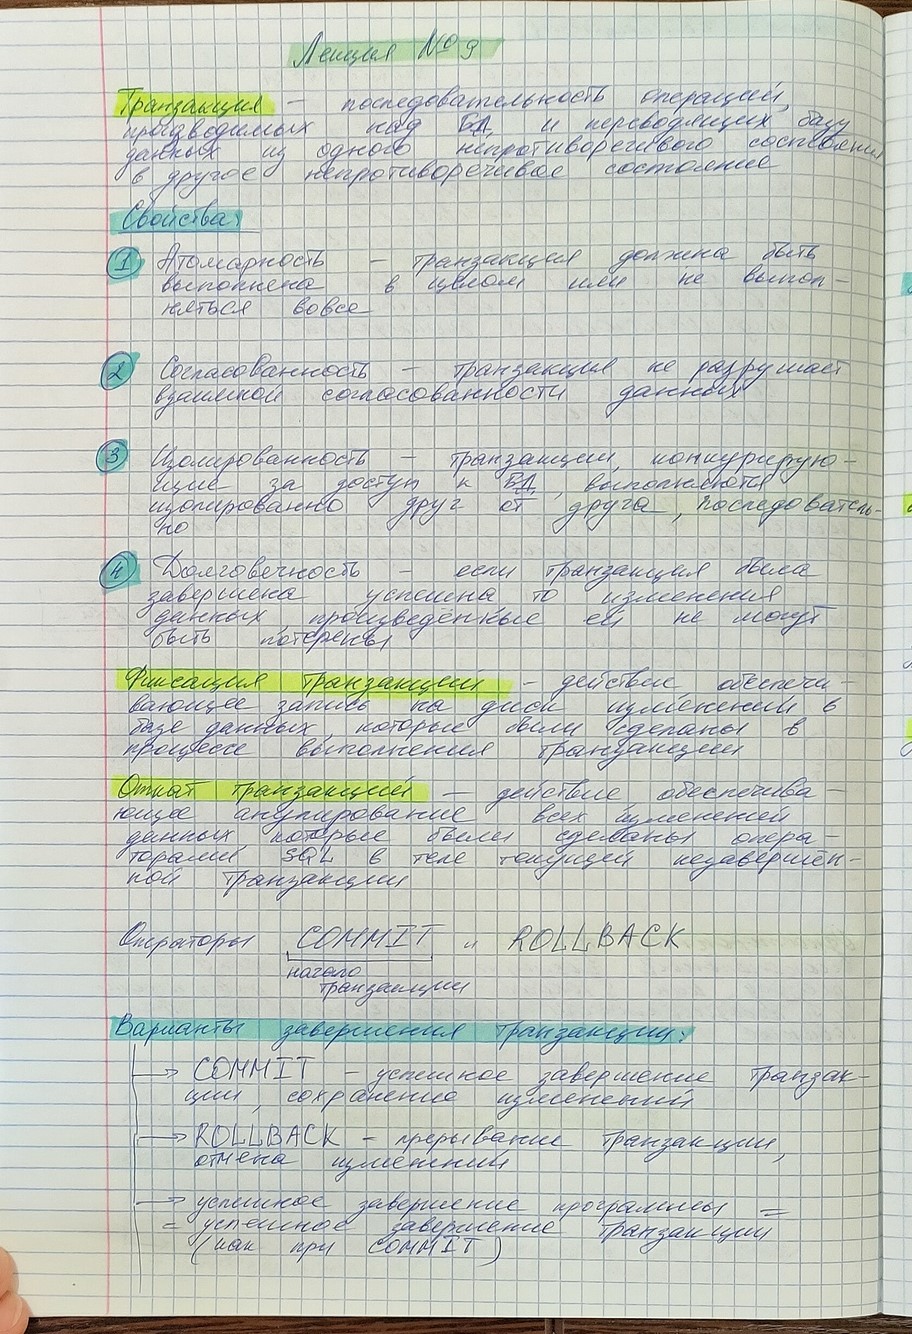 Лекция №9
Транзакция — последовательность операций,
производимых над БД, и переводящих базу
данных из одного непротиворечивого состояния
в другое непротиворечивое состояние
Свойства:
1 Атомарность — транзакция должна быть
выполнена в целом или не выпол-
няться вовсе
2 Согласованность — транзакция не разрушает
взаимной согласованности данных
3 Изолированность — транзакции, конкурирую-
щие за доступ к БД, выполняются
изолированно друг от друга, последователь-
но
4 Долговечность — если транзакция была
завершена успешна то изменения
данных, произведённые ей не могут
быть потеряны
Фиксация транзакций — действие обеспечи-
вающее запись на диск изменений в
базе данных, которые были сделаны в
процессе выполнения транзакции
Откат транзакций — действие обеспечива-
ющее анулирование всех изменений
данных которые были сделаны опера-
торами SQL в теле текущей незавершён-
ной транзакции
Операторы COMMIT и ROLLBACK
начало
транзакции
Варианты завершения транзакции:
→ COMMIT — успешное завершение транзак-
ции, сохранение изменений
→ ROLLBACK — прерывание транзакции,
отмена изменений
→ успешное завершение программы =
= успешное завершение транзакции
(как при COMMIT)